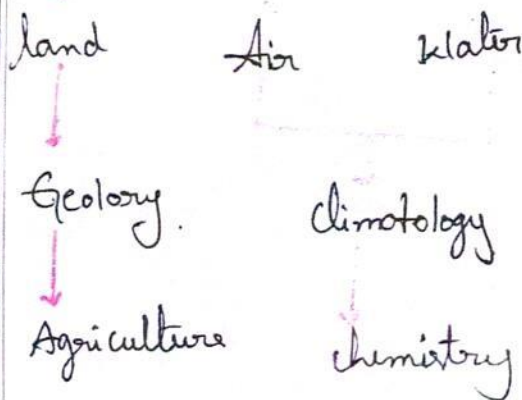 land Air Water
Geology Climatology
Agriculture chemistry